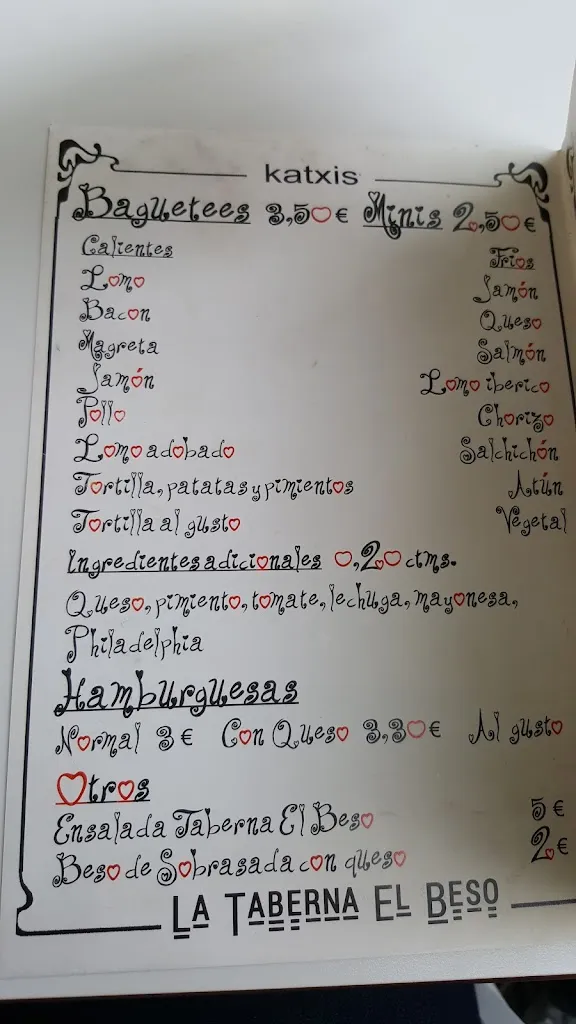 katxis
Baguetees 3,50€ Minis 2,50€
Calientes Frios
Lomo Jamón
Bacon Queso
Magreta Salmón
Jamón Lomo iberico
Pollo Chorizo
Lomo adobado Salchichón
Tortilla, patatas y pimientos Atún
Tortilla al gusto Vegetal
Ingredientes adicionales 0,20 ctms.
Queso, pimiento, tomate, lechuga, mayonesa,
Philadelphia
Hamburguesas
Normal 3€ Con Queso 3,30€ Al gusto
Otros
Ensalada Taberna El Beso 5€
Beso de Sobrasada con queso 2€
LA TABERNA EL BESO